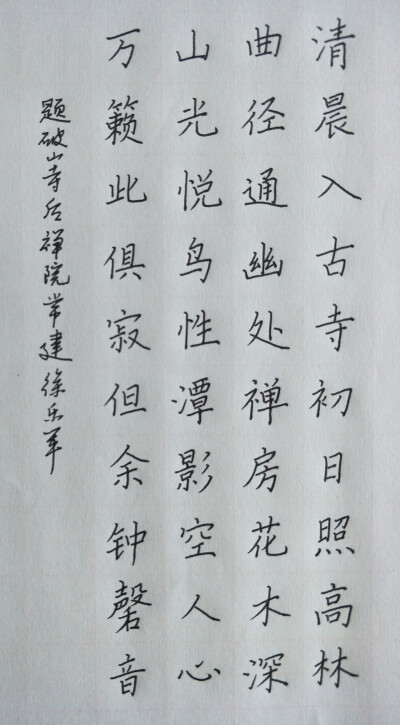 清晨入古寺初日照高林
曲径通幽处禅房花木深
山光悦鸟性潭影空人心
万籁此俱寂但余钟磬音
题破山寺后禅院常建徐乐军